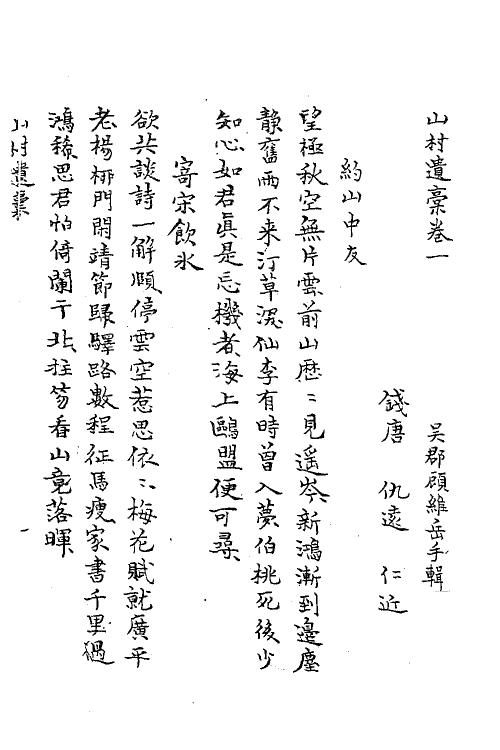 山村遺稾卷一
吳郡顧維岳手輯
錢唐 仇遠 仁近
約山中友
望極秋空無片雲前山歷〻見遥岑新鴻漸到邉塵
静舊雨不来汀草深仙李有時曾入夢伯桃死後少
知心如君眞是忘機者海上鷗盟便可尋
寄宗飲氷
欲共談詩一解頤停雲空惹思依〻梅花賦就廣平
老楊栁門閑靖節歸驛路數程征馬瘦家書千里過
鴻稀思君怕倚闌干北拄笏看山竟落暉
山村遺稾
一